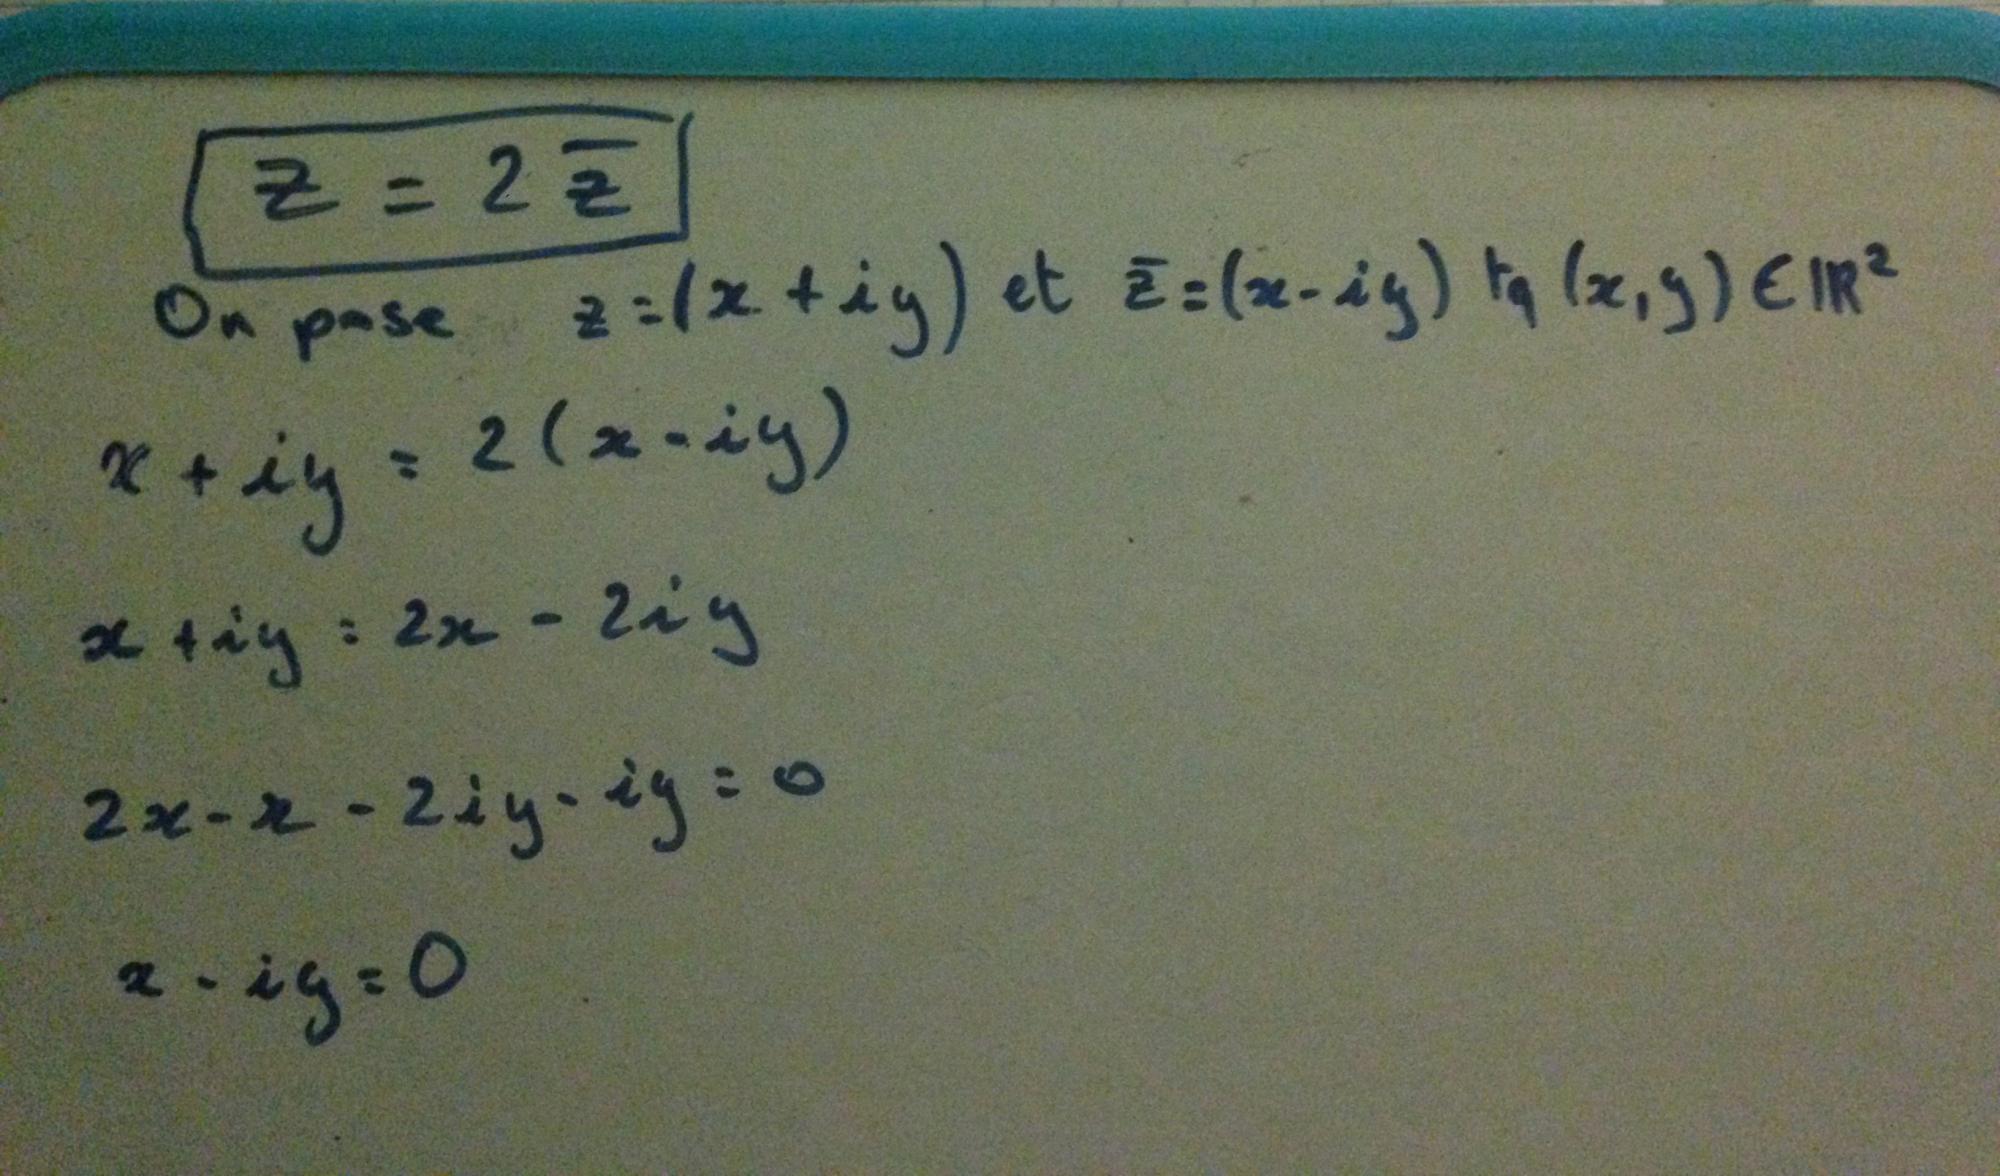 z = 2 z̅
On pose z = (x + iy) et z̅ = (x - iy) tq (x, y) ∈ ℝ²
x + iy = 2 (x - iy)
x + iy = 2x - 2iy
2x - x - 2iy - iy = 0
x - iy = 0